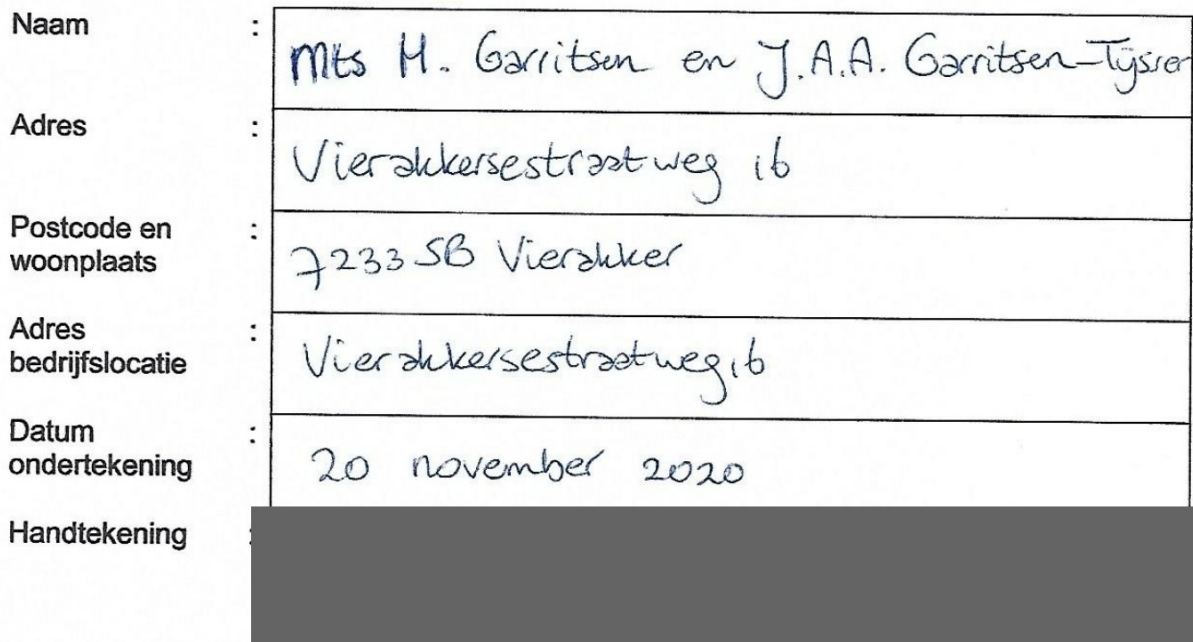 Naam : Mts H. Garritsen en J.A.A. Garritsen-Tijssen
Adres : Vierakkersestraatweg 16
Postcode en woonplaats : 7233 SB Vierakker
Adres bedrijfslocatie : Vierakkersestraatweg 16
Datum ondertekening : 20 november 2020
Handtekening :